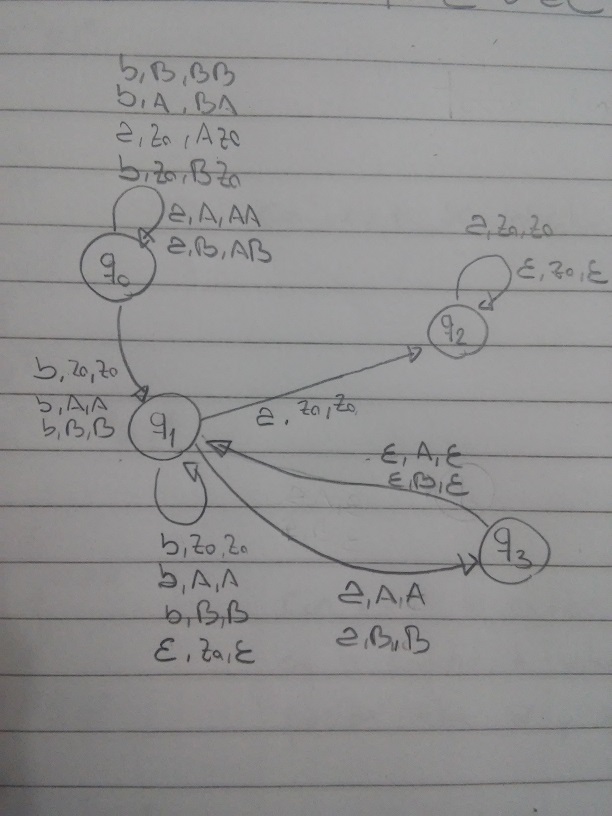 b, B, BB
b, A, BA
a, Z0, AZ0
b, Z0, BZ0
a, A, AA
a, B, AB
q0
a, Z0, Z0
ε, Z0, ε
q2
b, Z0, Z0
b, A, A
b, B, B
q1
a, Z0, Z0
ε, A, ε
ε, B, ε
q3
b, Z0, Z0
b, A, A
b, B, B
ε, Z0, ε
a, A, A
a, B, B